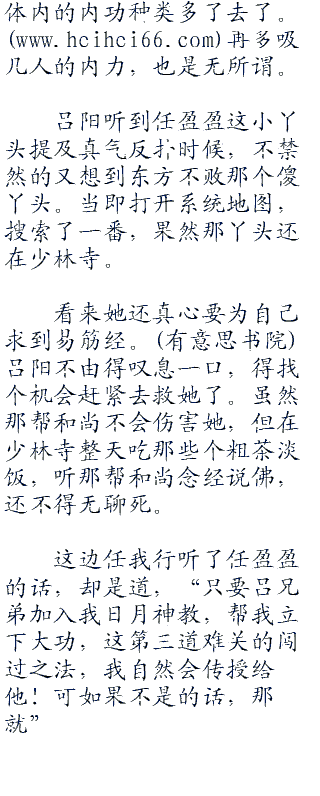 体内的内功种类多了去了。
(www.hcihci66.com)再多吸
几人的内力，也是无所谓。
吕阳听到任盈盈这小丫
头提及真气反扑时候，不禁
然的又想到东方不败那个傻
丫头。当即打开系统地图，
搜索了一番，果然那丫头还
在少林寺。
看来她还真心要为自己
求到易筋经。(有意思书院)
吕阳不由得叹息一口，得找
个机会赶紧去救她了。虽然
那帮和尚不会伤害她，但在
少林寺整天吃那些个粗茶淡
饭，听那帮和尚念经说佛，
还不得无聊死。
这边任我行听了任盈盈
的话，却是道，“只要吕兄
弟加入我日月神教，帮我立
下大功，这第三道难关的闯
过之法，我自然会传授给
他！可如果不是的话，那
就”